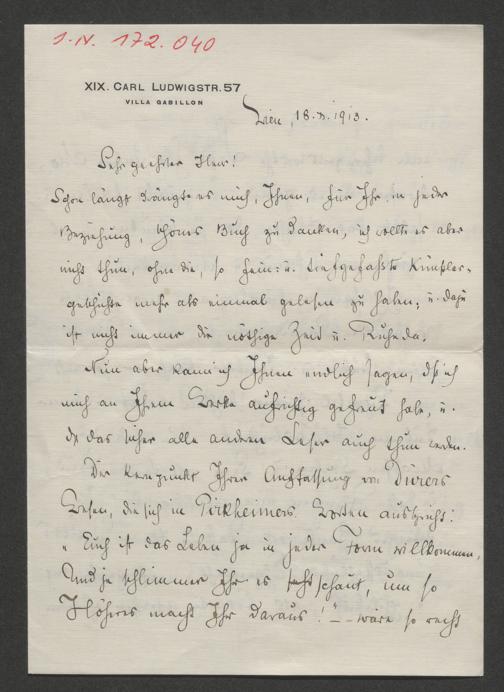 I.N. 172.040
XIX. CARL LUDWIGSTR. 57
VILLA GABILLON
Wien, 18. 1913.
Sehr geehrter Herr!
Schon längst drängte es mich, Ihnen, für Ihr, in jeder
Beziehung, schönes Buch zu danken, ich wollte es aber
nicht thun, ohne die, so fein= u. tiefgefaßte Künstler=
geschichte mehr als einmal gelesen zu haben, u. dazu
ist nicht immer die nöthige Zeit u. Ruhe da.
Nun aber kann ich Ihnen endlich sagen, dß ich
mich an Ihrem Werke aufrichtig gefreut habe, u.
dß das sicher alle andern Leser auch thun werden.
Der Kernpunkt Ihrer Auffassung von Dürers
Wesen, die sich in Pirkheimers Worten ausspricht:
„Euch ist das Leben ja in jeder Form willkommen,
Und je schlimmer Ihr es schaut, um so
Höheres macht Ihr daraus!" – wäre so recht